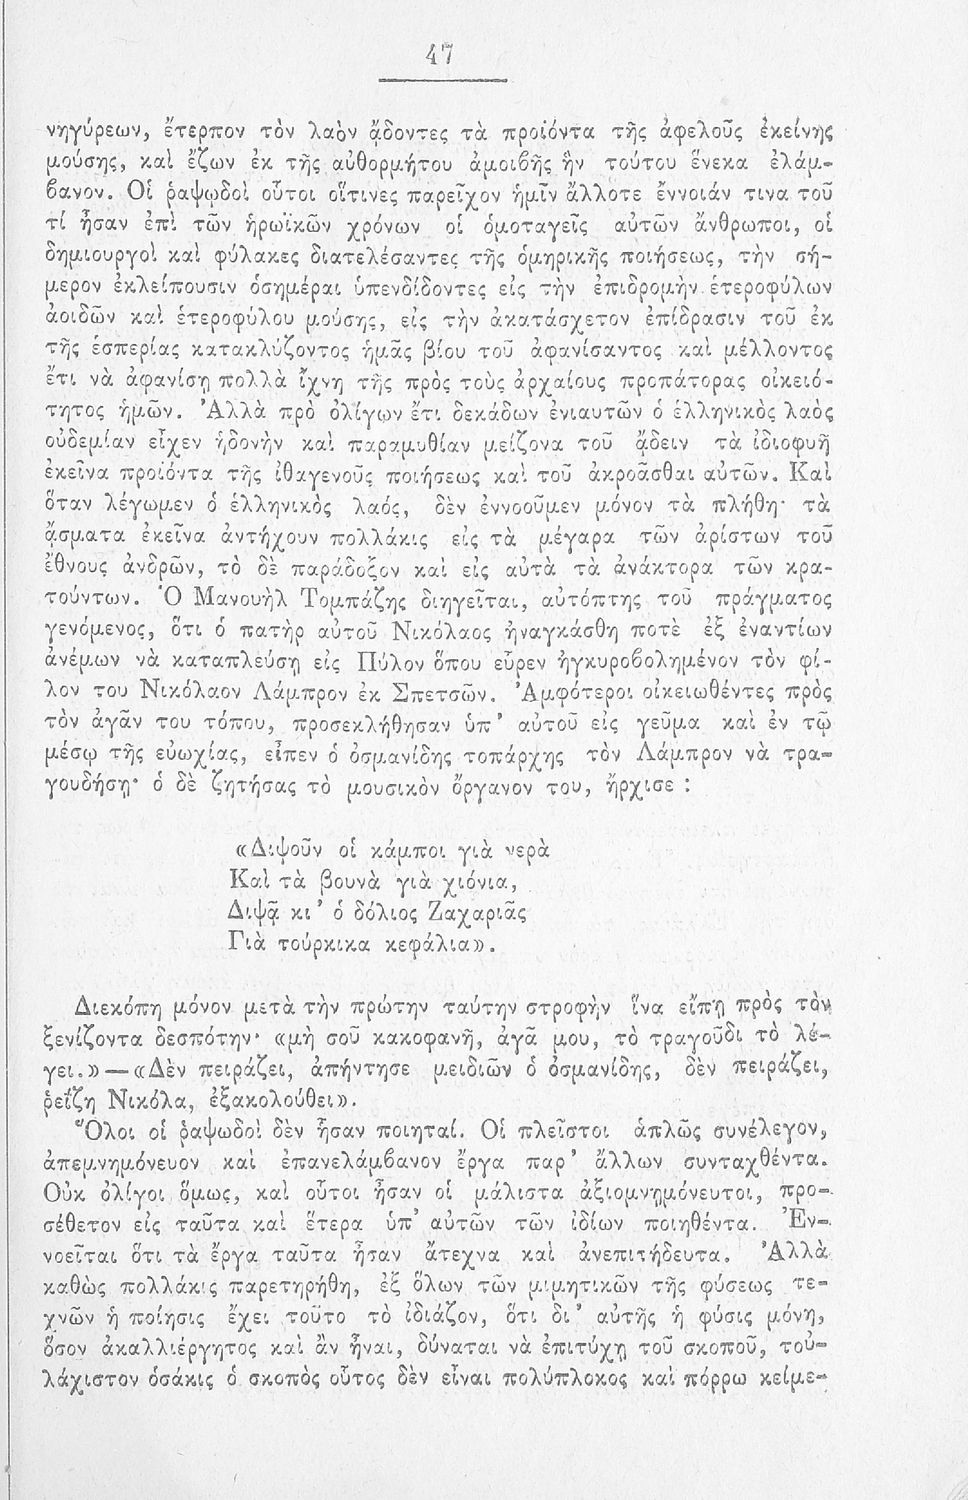 47
νηγύρεων, ἔτερπον τὸν λαὸν ᾄδοντες τὰ προϊόντα τῆς ἀφελοῦς ἐκείνης
μούσης, καὶ ἔζων ἐκ τῆς αὐθορμήτου ἀμοιβῆς ἣν τούτου ἕνεκα ἐλάμ-
βανον. Οἱ ῥαψῳδοὶ οὗτοι οἵτινες παρεῖχον ἡμῖν ἄλλοτε ἔννοιάν τινα τοῦ
τί ἦσαν ἐπὶ τῶν ἡρωϊκῶν χρόνων οἱ ὁμοταγεῖς αὐτῶν ἄνθρωποι, οἱ
δημιουργοὶ καὶ φύλακες διατελέσαντες τῆς ὁμηρικῆς ποιήσεως, τὴν σή-
μερον ἐκλείπουσιν ὁσημέραι ὑπενδίδοντες εἰς τὴν ἐπιδρομὴν ἑτεροφύλων
ἀοιδῶν καὶ ἑτεροφύλου μούσης, εἰς τὴν ἀκατάσχετον ἐπίδρασιν τοῦ ἐκ
τῆς ἑσπερίας κατακλύζοντος ἡμᾶς βίου τοῦ ἀφανίσαντος καὶ μέλλοντος
ἔτι νὰ ἀφανίσῃ πολλὰ ἴχνη τῆς πρὸς τοὺς ἀρχαίους προπάτορας οἰκειό-
τητος ἡμῶν. Ἀλλὰ πρὸ ὀλίγων ἔτι δεκάδων ἐνιαυτῶν ὁ ἑλληνικὸς λαὸς
οὐδεμίαν εἶχεν ἡδονὴν καὶ παραμυθίαν μείζονα τοῦ ᾄδειν τὰ ἰδιοφυῆ
ἐκεῖνα προϊόντα τῆς ἰθαγενοῦς ποιήσεως καὶ τοῦ ἀκροᾶσθαι αὐτῶν. Καὶ
ὅταν λέγωμεν ὁ ἑλληνικὸς λαός, δὲν ἐννοοῦμεν μόνον τὰ πλήθη· τὰ
ᾄσματα ἐκεῖνα ἀντήχουν πολλάκις εἰς τὰ μέγαρα τῶν ἀρίστων τοῦ
ἔθνους ἀνδρῶν, τὸ δὲ παράδοξον καὶ εἰς αὐτὰ τὰ ἀνάκτορα τῶν κρα-
τούντων. Ὁ Μανουὴλ Τομπάζης διηγεῖται, αὐτόπτης τοῦ πράγματος
γενόμενος, ὅτι ὁ πατὴρ αὐτοῦ Νικόλαος ἠναγκάσθη ποτὲ ἐξ ἐναντίων
ἀνέμων νὰ καταπλεύσῃ εἰς Πύλον ὅπου εὗρεν ἠγκυροβολημένον τὸν φί-
λον του Νικόλαον Λάμπρον ἐκ Σπετσῶν. Ἀμφότεροι οἰκειωθέντες πρὸς
τὸν ἀγᾶν του τόπου, προσεκλήθησαν ὑπ' αὐτοῦ εἰς γεῦμα καὶ ἐν τῷ
μέσῳ τῆς εὐωχίας, εἶπεν ὁ ὀσμανίδης τοπάρχης τὸν Λάμπρον νὰ τρα-
γουδήσῃ· ὁ δὲ ζητήσας τὸ μουσικὸν ὄργανον του, ἤρχισε :
«Διψοῦν οἱ κάμποι γιὰ νερὰ
Καὶ τὰ βουνὰ γιὰ χιόνια,
Διψᾷ κι' ὁ δόλιος Ζαχαριᾶς
Γιὰ τούρκικα κεφάλια».
Διεκόπη μόνον μετὰ τὴν πρώτην ταύτην στροφὴν ἵνα εἴπῃ πρὸς τὸν
ξενίζοντα δεσπότην· «μὴ σοῦ κακοφανῇ, ἀγᾶ μου, τὸ τραγοῦδι τὸ λέ-
γει.» — «Δὲν πειράζει, ἀπήντησε μειδιῶν ὁ ὀσμανίδης, δὲν πειράζει,
ῥεΐζη Νικόλα, ἐξακολούθει».
Ὅλοι οἱ ῥαψωδοὶ δὲν ἦσαν ποιηταί. Οἱ πλεῖστοι ἁπλῶς συνέλεγον,
ἀπεμνημόνευον καὶ ἐπανελάμβανον ἔργα παρ' ἄλλων συνταχθέντα.
Οὐκ ὀλίγοι ὅμως, καὶ οὗτοι ἦσαν οἱ μάλιστα ἀξιομνημόνευτοι, προ-
σέθετον εἰς ταῦτα καὶ ἕτερα ὑπ' αὐτῶν τῶν ἰδίων ποιηθέντα. Ἐν-
νοεῖται ὅτι τὰ ἔργα ταῦτα ἦσαν ἄτεχνα καὶ ἀνεπιτήδευτα. Ἀλλὰ
καθὼς πολλάκις παρετηρήθη, ἐξ ὅλων τῶν μιμητικῶν τῆς φύσεως τε-
χνῶν ἡ ποίησις ἔχει τοῦτο τὸ ἰδιάζον, ὅτι δι' αὐτῆς ἡ φύσις μόνη,
ὅσον ἀκαλλιέργητος καὶ ἂν ᾖναι, δύναται νὰ ἐπιτύχῃ τοῦ σκοποῦ, τοὐ-
λάχιστον ὁσάκις ὁ σκοπὸς οὗτος δὲν εἶναι πολύπλοκος καὶ πόρρω κείμε-